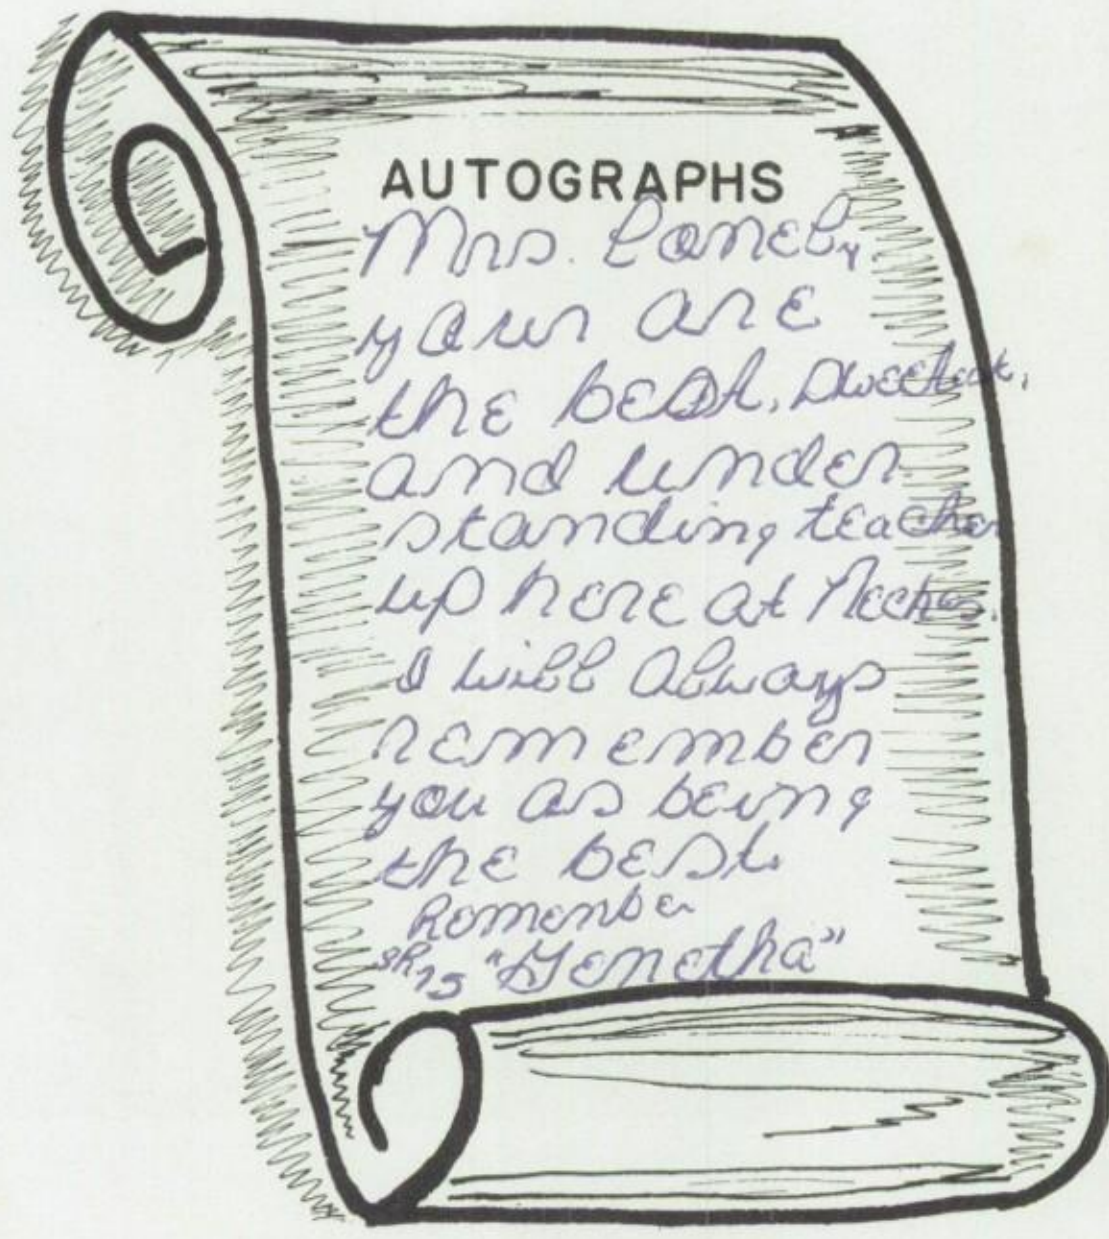 AUTOGRAPHS
Mrs.
your are
the best, sweetest,
and under
standing teacher
up here at Neches.
I will always
remember
you as being
the best.
Remember
SR 75 "Genetha"